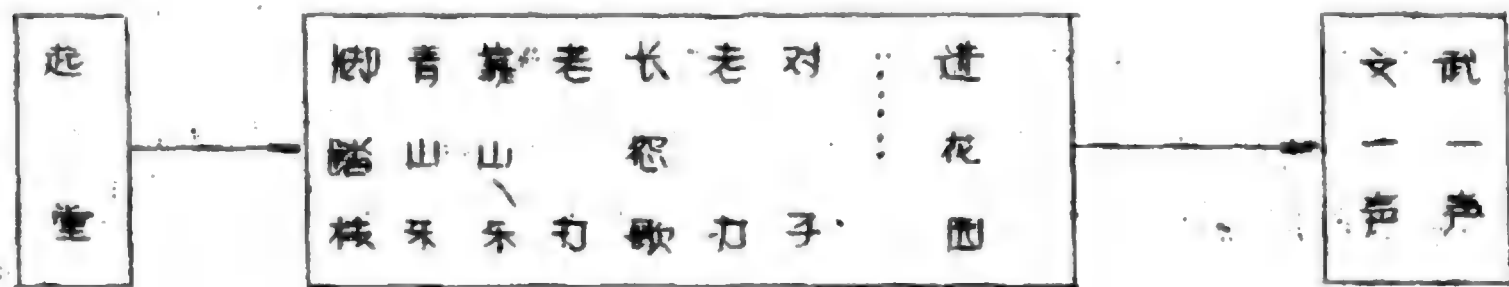 起堂
脚踏
青山
靠山乐、
老
长怨歌
老
对子
……
进花园
文一声
武一声